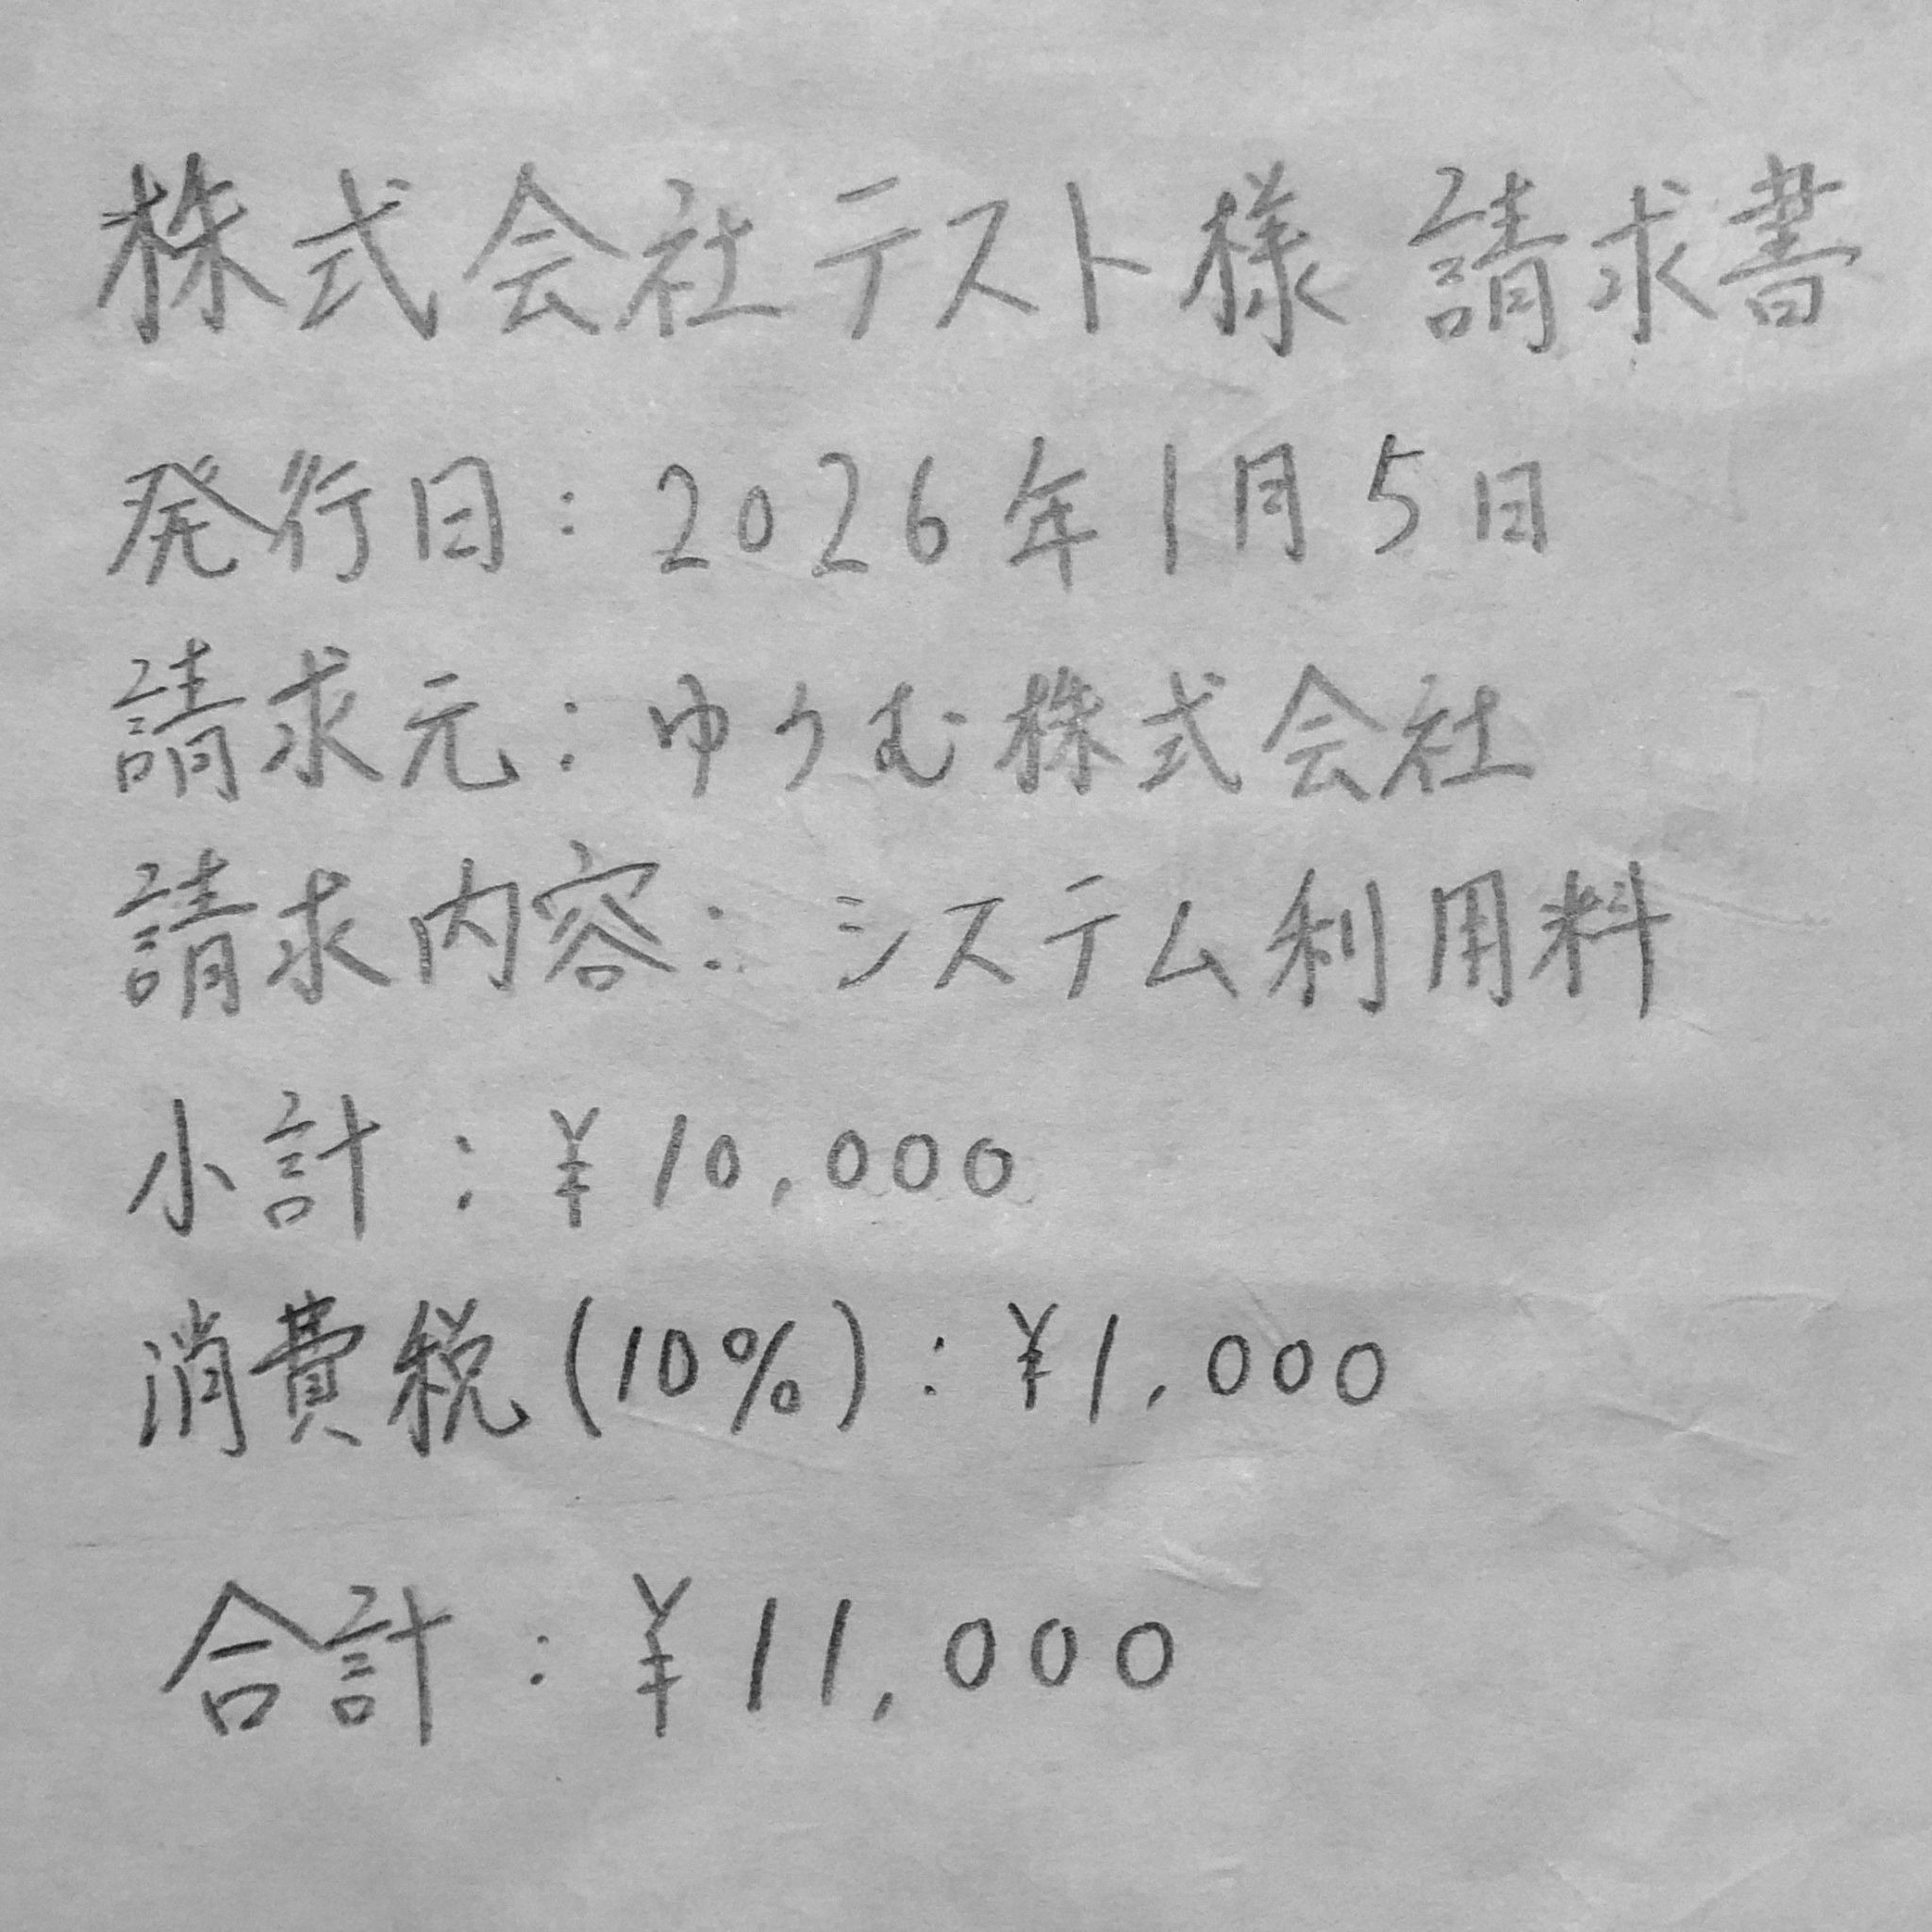 株式会社テスト様 請求書
発行日：2026年1月5日
請求元：ゆうむ株式会社
請求内容：システム利用料
小計：¥10,000
消費税(10%)：¥1,000
合計：¥11,000